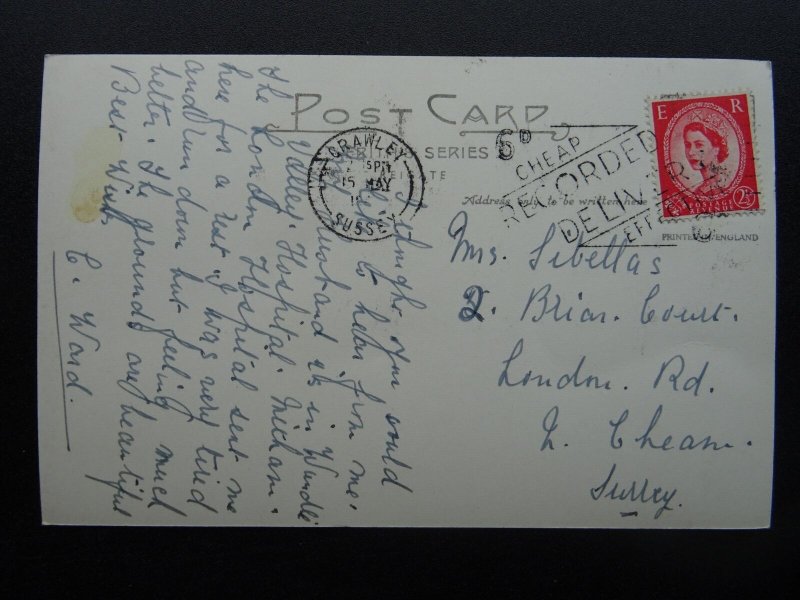 POST CARD
SERIES
Address only to be written here
PRINTED IN ENGLAND
CRAWLEY
PM
15 MAY
SUSSEX
6D
CHEAP
RECORDED
DELIVERY
E R
POSTAGE
REVENUE
2½D
I thought you would
like to hear from me.
Husband is in Wandle
Valley. Hospital. Mitcham.
The London Hospital sent me
here for a rest. I was very tired
and run down but feeling much
better. The grounds are beautiful
Best Wishes
C. Ward.
Mrs. Sibellas
2. Briar. Court.
London. Rd.
N. Cheam.
Surrey.